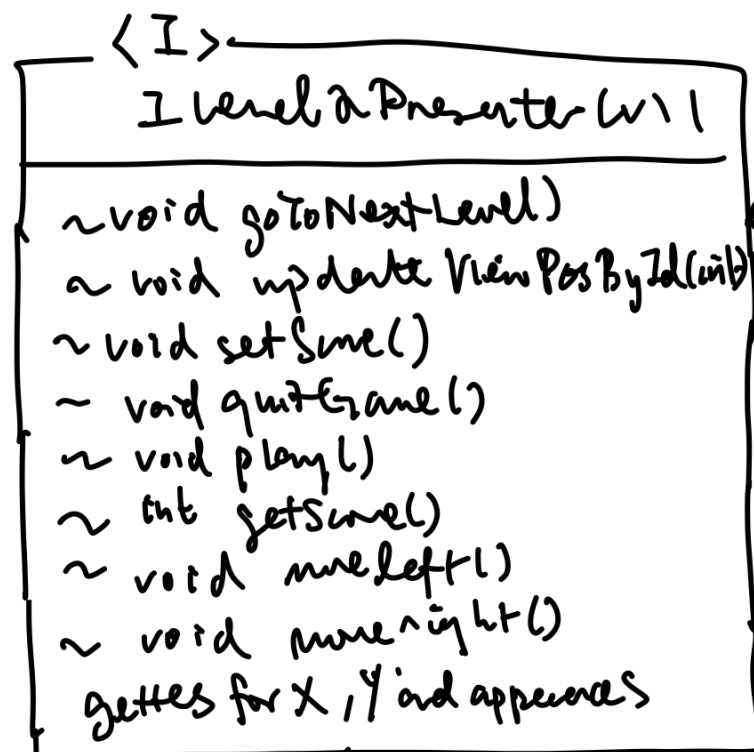 <I>
ILevel2Presenter(v)
~void goToNextLevel()
~ void updateViewPosById(int)
~void setScore()
~ void quitGame()
~ void play()
~ int getScore()
~ void moveleft()
~ void moveright()
gettes for X, Y and apperences